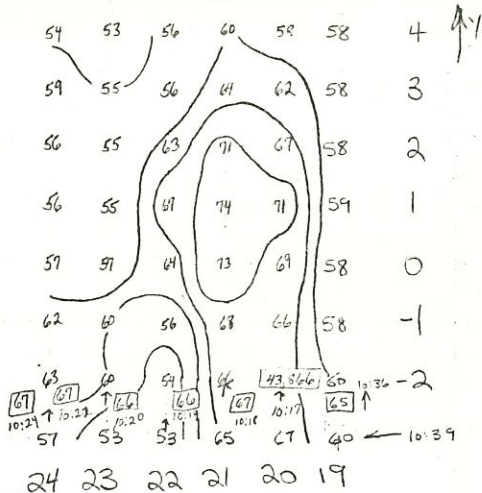 54 53 56 60 59 58 4 y
59 55 56 64 62 58 3
56 55 63 71 67 58 2
56 55 67 74 71 59 1
57 57 64 73 69 58 0
62 60 56 68 66 58 -1
63 60 54 43,866 60 10:36 -2
67 67 66 66 67 65
10:24 10:22 10:20 10:19 10:18 10:17
57 53 53 65 67 60 10:39
24 23 22 21 20 19